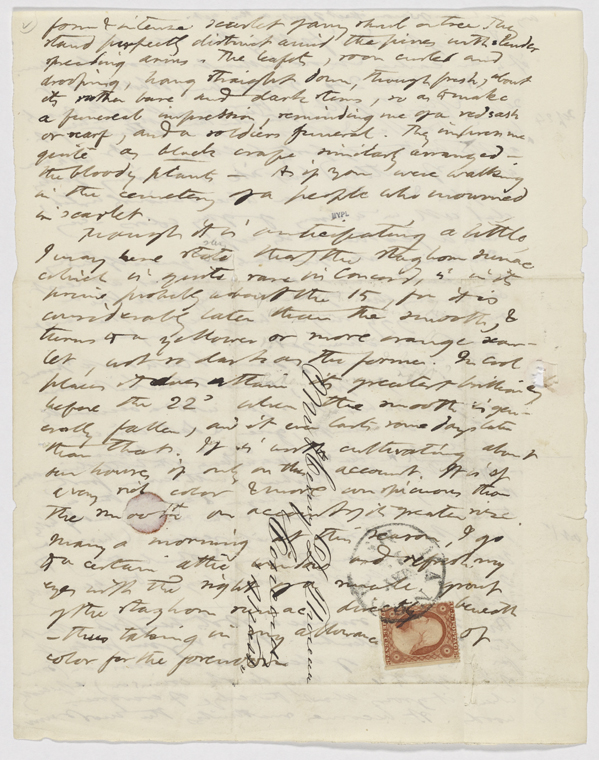 form & intense scarlet of any shrub or tree. They
stand perfectly distinct amid the pines with slender
spreading arms. The leafets, now curled and
drooping, hang straight down, though fresh, about
its rather bare, and dark stems, so as to make
a funereal impression, reminding me of a red sash
or scarf, and a soldiers funeral. They impress me
quite as black crape similarly arranged—
the bloody plants— As if you were walking
in the cemetery of a people who mourned
in scarlet.
Though it is anticipating a little
I may here state that the staghorn sumac
which is quite rare in Concord, is in its
prime probably about the 15, for it is
considerably later than the smooth, &
turns to a yellower or more orange scar-
let, not so dark as the former. In cool
places it does attain its greatest brilliancy
before the 22d when the smooth is gen-
erally fallen, and it even lasts some days later
than that. It is worth cultivating about
our houses if only on this account. It is of
a very rich color & more conspicuous than
the smooth on account of its greater size.
Many a morning at this season, I go
to a certain attic window and refresh my
eyes with the sight of a group
of the staghorn sumac directly beneath
—thus taking in my allowance of
color for the forenoon
NYPL
Mr Henry D. Thoreau
Concord
Mass